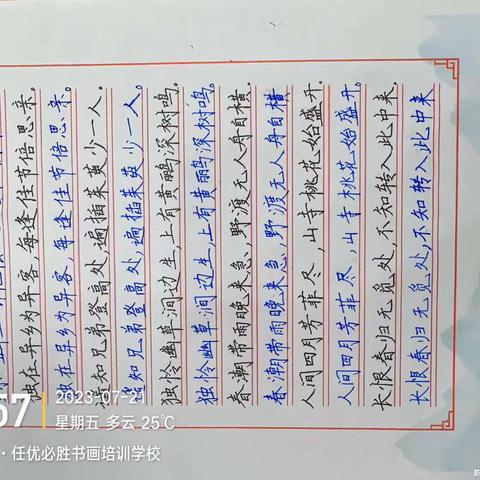 独在异乡为异客,每逢佳节倍思亲。
独在异乡为异客,每逢佳节倍思亲。
遥知兄弟登高处,遍插茱萸少一人。
遥知兄弟登高处,遍插茱萸少一人。
独怜幽草涧边生,上有黄鹂深树鸣。
独怜幽草涧边生,上有黄鹂深树鸣。
春潮带雨晚来急,野渡无人舟自横。
春潮带雨晚来急,野渡无人舟自横
人间四月芳菲尽,山寺桃花始盛开。
人间四月芳菲尽 山寺桃花始盛开。
长恨春归无觅处,不知转入此中来。
长恨春归无觅处,不知转入此中来
57
2023-07-21
星期五 多云 25℃
·任优必胜书画培训学校
防